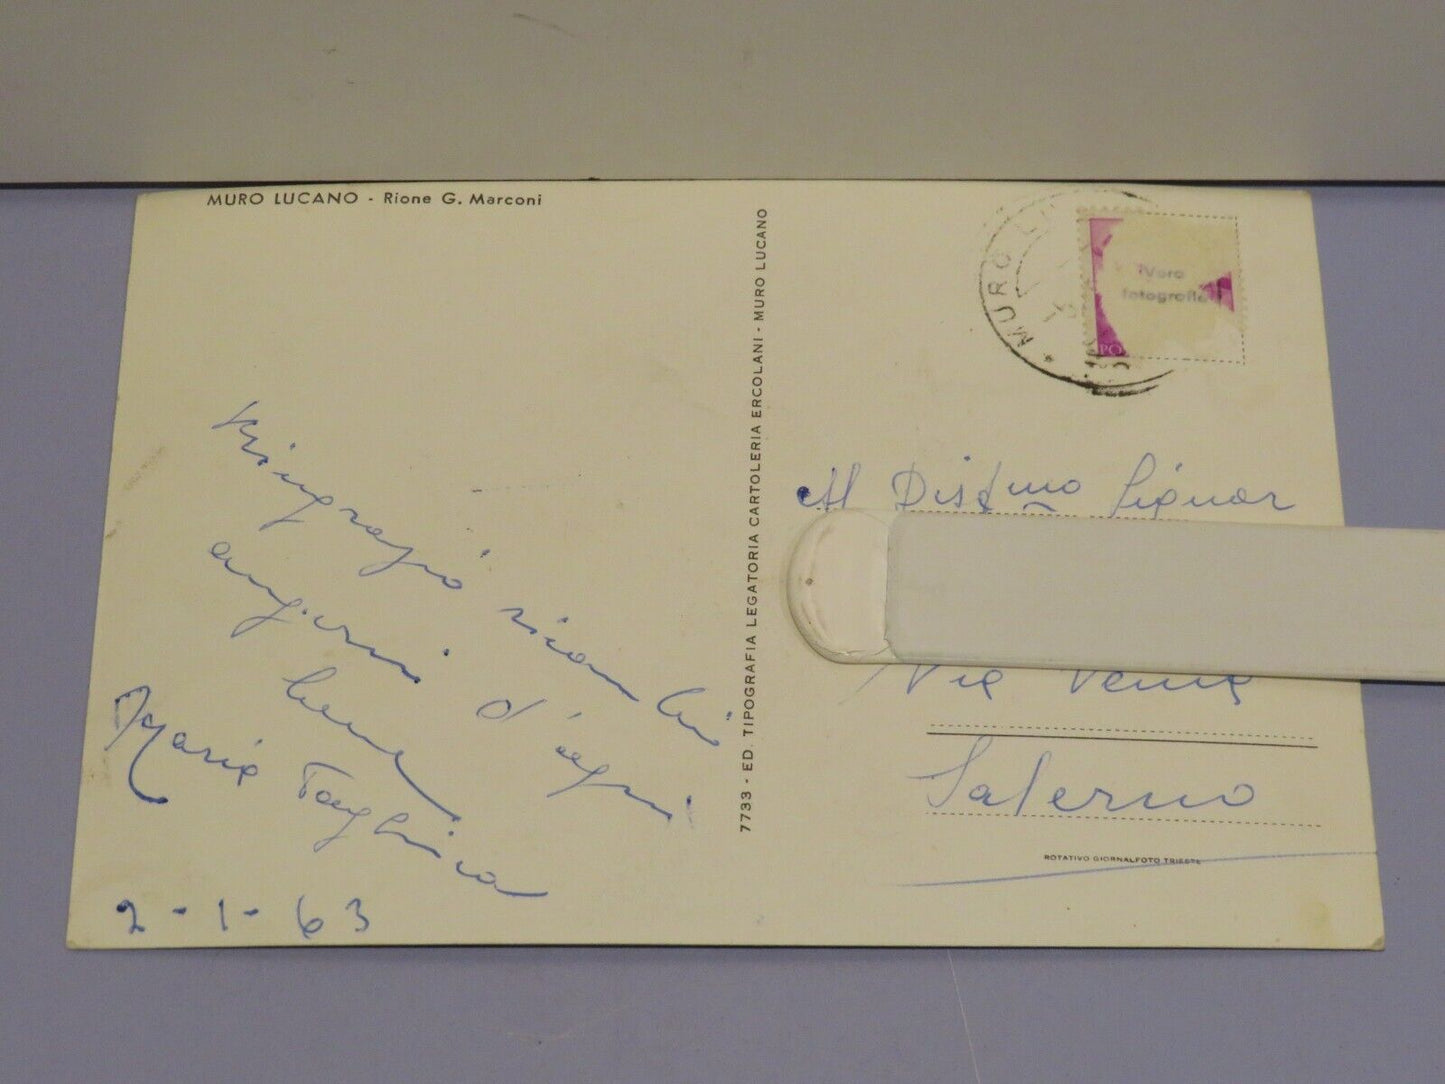 MURO LUCANO - Rione G. Marconi
Ringrazio ricambi
auguri d'ogni
bene
Maria
2-1-63
7733 - ED. TIPOGRAFIA LEGATORIA CARTOLERIA ERCOLANI - MURO LUCANO
MURO LU
Vera
fotografia
PO
Al Dist.mo Signor
Via
Salerno
ROTATIVO GIORNALFOTO TRIESTE